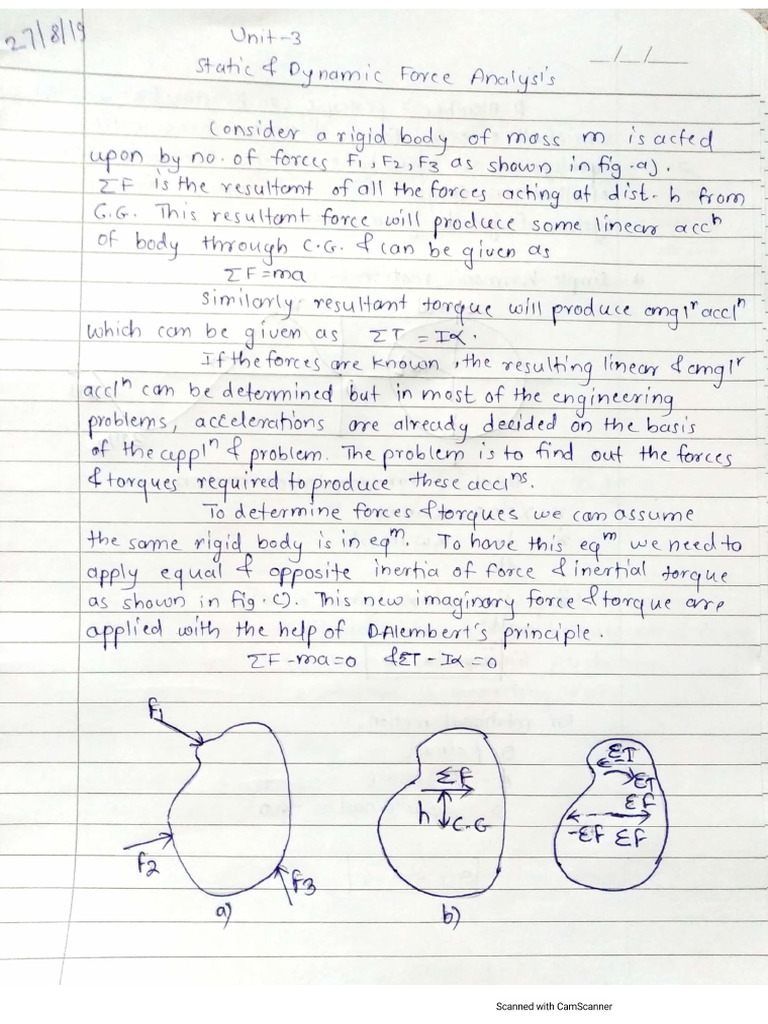 27/8/19
Unit-3
_/_/__
Static & Dynamic Force Analysis
Consider a rigid body of mass m is acted
upon by no. of forces F1, F2, F3 as shown in fig.a).
ΣF is the resultant of all the forces acting at dist. h from
C.G. This resultant force will produce some linear accⁿ
of body through C.G. & can be given as
ΣF=ma
Similarly resultant torque will produce anglʳ acclⁿ
which can be given as ΣT = Iα.
If the forces are known, the resulting linear & anglʳ
acclⁿ can be determined but in most of the engineering
problems, accelerations are already decided on the basis
of the applⁿ & problem. The problem is to find out the forces
& torques required to produce these acclⁿˢ.
To determine forces & torques we can assume
the same rigid body is in eqᵐ. To have this eqᵐ we need to
apply equal & opposite inertia of force & inertial torque
as shown in fig. c). This new imaginary force & torque are
applied with the help of D'Alembert's principle.
ΣF-ma=0 & ΣT - Iα = 0
F1
F2
F3
a)
ΣF
h
C.G
b)
ΣT
ΣF
-ΣF ΣF
Scanned with CamScanner